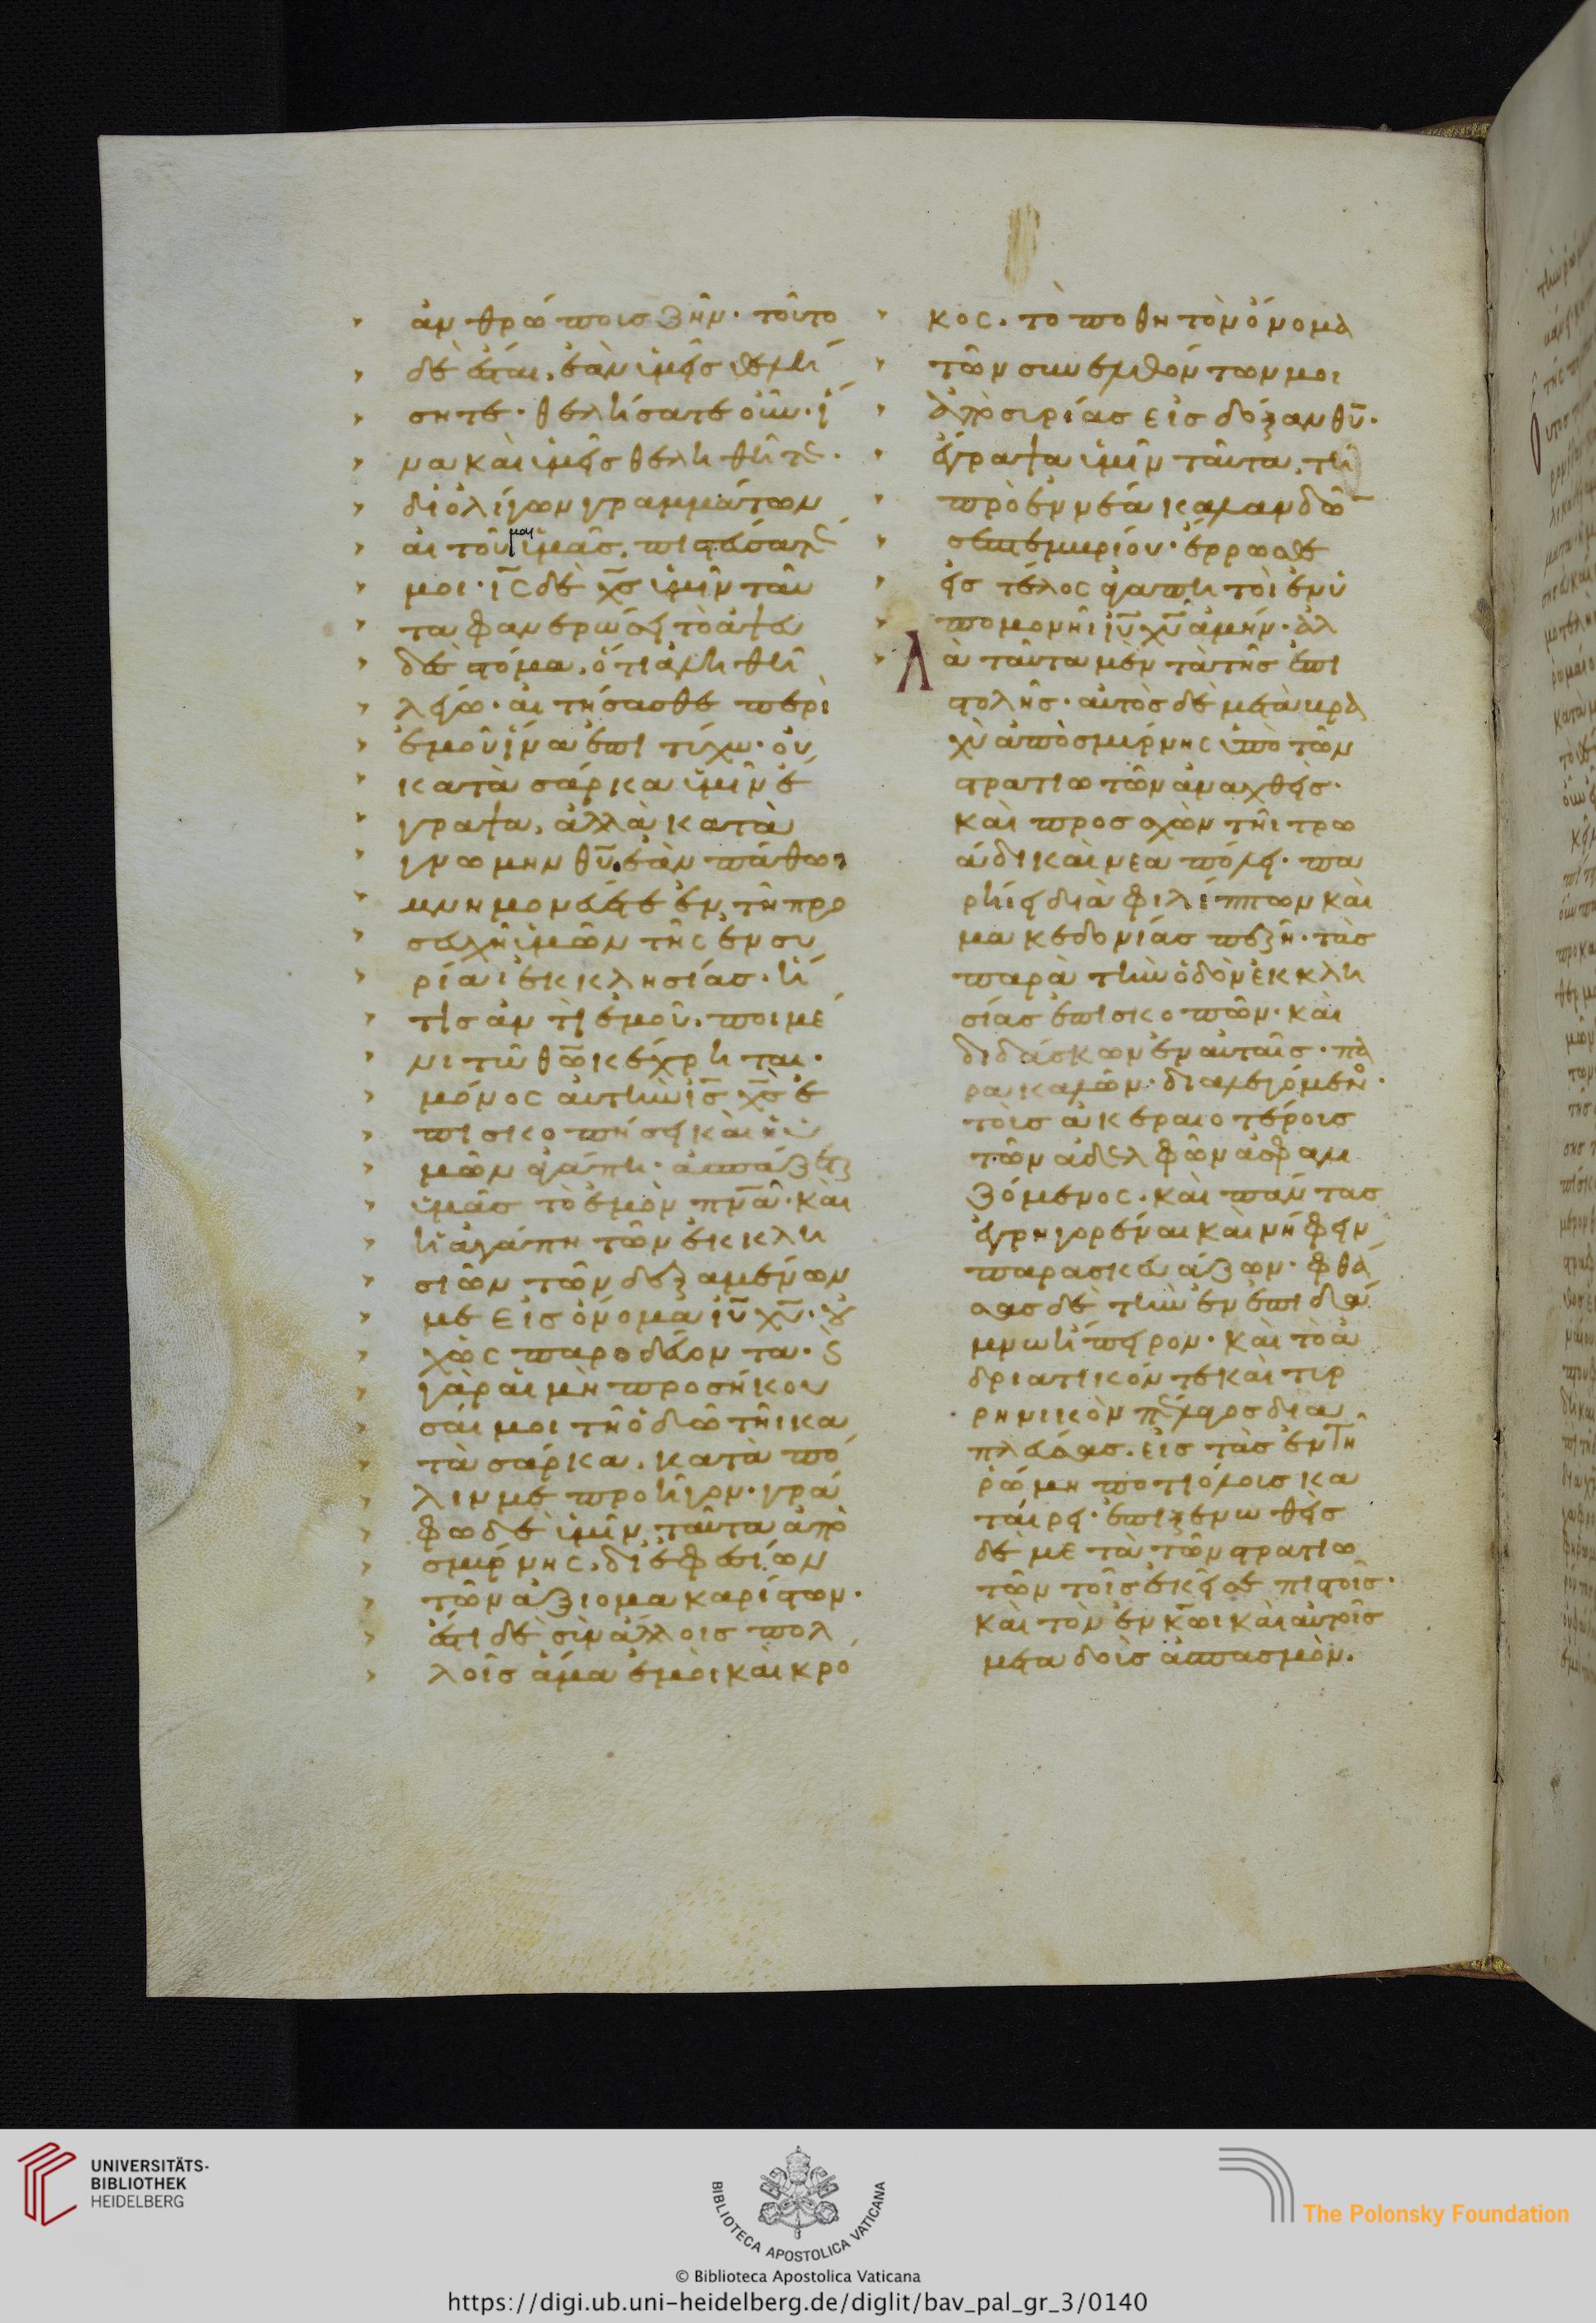 ἀνθρώποις ζῆν· τοῦτο
δὲ ἔσται, ἐὰν ὑμεῖς θελή
σητε· θελήσατε οὖν· ἵ
να καὶ ὑμεῖς θεληθῆτε·
δι ὀλίγων γραμμάτων
αἰτοῦμαι ὑμᾶς, πιστεύσατέ
μοι· ι̅ς̅ δὲ χ̅ς̅ ὑμῖν ταῦ
τα φανερώσει τὸ ἀψευ
δὲς στόμα, ὅτι ἀληθῆ
λέγω· αἰτήσασθε περὶ
ἐμοῦ ἵνα ἐπιτύχω· οὐ
κατὰ σάρκα ὑμῖν ἔ
γραψα, ἀλλὰ κατὰ
γνώμην θ̅υ̅· ἐὰν πάθω·
μνημονεύετε ἐν τῆ προ
σευχῆ ὑμῶν τῆς ἐν συ
ρίαι ἐκκλησίας· ἥ
τις ἀντὶ ἐμοῦ, ποιμέ
νι τῶ θ̅ω̅ κέχρηται·
μόνος αὐτὴν ι̅ς̅ χ̅ς̅ ἐ
πισκοπήσει καὶ ἡ ὑ
μῶν ἀγάπη· ἀσπάζεται
ὑμᾶς τὸ ἐμὸν π̅ν̅α̅· καὶ
ἡ ἀγάπη τῶν ἐκκλη
σιῶν τῶν δεξαμένων
με εἰς ὄνομα ι̅υ̅ χ̅υ̅· οὐ
χ ὡς παροδεύοντα· καὶ
γὰρ αἱ μὴ προσήκου
σαί μοι τῆ ὁδῶ τῆι κα
τὰ σάρκα, κατὰ πό
λιν με προῆγον· γρά
φω δὲ ὑμῖν ταῦτα ἀπὸ
σμύρνης, δι ἐφεσίων
τῶν ἀξιομακαρίστων·
ἔτι δὲ σὺν ἄλλοις πολ
λοῖς ἅμα ἐμοὶ καὶ κρο
κος· τὸ ποθητὸν ὄνομα
τῶν συνελθόντων μοι
ἀπὸ συρίας εἰς δόξαν θ̅υ̅·
ἔγραψα ὑμῖν ταῦτα, τῆ
πρὸ ἐννέα καλανδῶ
σεπτεμβρίου· ἔρρωσθε
εἰς τέλος ἀγαπητοὶ ἐν ὑ
πομονῆι ι̅υ̅ χ̅υ̅ ἀμήν· ἀλ
λὰ ταῦτα μὲν τὰ τῆς ἐπι
στολῆς· αὐτὸς δὲ μετὰ βρα
χὺ ἀπὸ σμύρνης ὑπὸ τῶν
στρατιωτῶν ἀναχθεὶς·
καὶ προσσχὼν τῆι τρω
άδι καὶ νέα πόλει· πα
ρήει διὰ φιλίππων καὶ
μακεδονίας πεζῆ· τὰς
παρὰ τὴν ὁδὸν ἐκκλη
σίας ἐπισκοπῶν· καὶ
διδάσκων ἐν αὐταῖς· πα
ρακαλῶν· διαλεγόμενο·
τοῖς ἀκεραιοτέροις
τῶν ἀδελφῶν ἀσφαλι
ζόμενος· καὶ πάντας
ἐγρηγορέναι καὶ νήφειν
παρασκευάζων· φθά
σας δὲ τὴν ἐν ἐπιδά
μνω ἤπειρον· καὶ τὸ ἀ
δριατικόν τε καὶ τυρ
ρηνικὸν πέλαγος δια
πλεύσας· εἰς τὰς ἐν τῆ
ῥώμη ποτιόλοις κα
ταίρει· ἐπιξενωθεὶς
δὲ μετὰ τῶν στρατιω
τῶν τοῖς ἐκεῖσε πιστοῖς·
καὶ τὸν ἐν κ̅ω̅ι καὶ αὐτοῖς
μεταδοὺς ἀσπασμὸν.
UNIVERSITÄTS-
BIBLIOTHEK
HEIDELBERG
BIBLIOTECA APOSTOLICA VATICANA
The Polonsky Foundation
© Biblioteca Apostolica Vaticana
https://digi.ub.uni-heidelberg.de/diglit/bav_pal_gr_3/0140